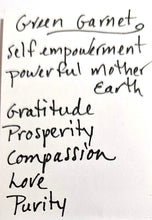 Green Garnet.
self empowerment
powerful mother
Earth
Gratitude
Prosperity
Compassion
Love
Purity